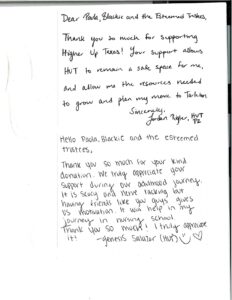 Dear Paola, Blackie and the Esteemed Trustees,
Thank you so much for supporting
Higher Up Texas! Your support allows
HUT to remain a safe space for me,
and allow me the resources needed
to grow and plan my move to Tarleton.
Sincerely,
Jordan HUT
Hello Paola, Blackie and the esteemed
trustees,
Thank you so much for your kind
donation. We truly appreciate your
support during our adulthood journey.
It is scary and nerve racking but
having friends like you guys gives
us motivation. It will help in my
journey in nursing school.
Thank you so much! I truly appreciate
it! -Genesis Salazar (HUT)